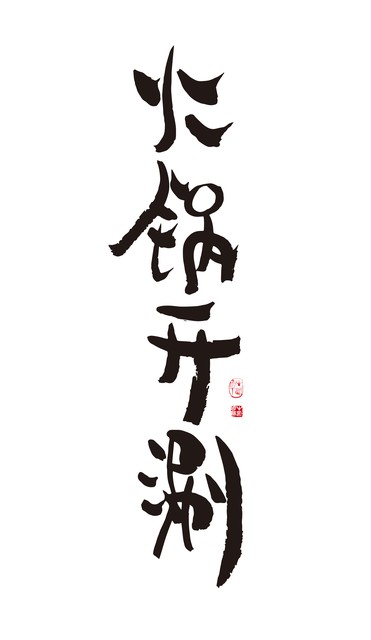 火锅开涮